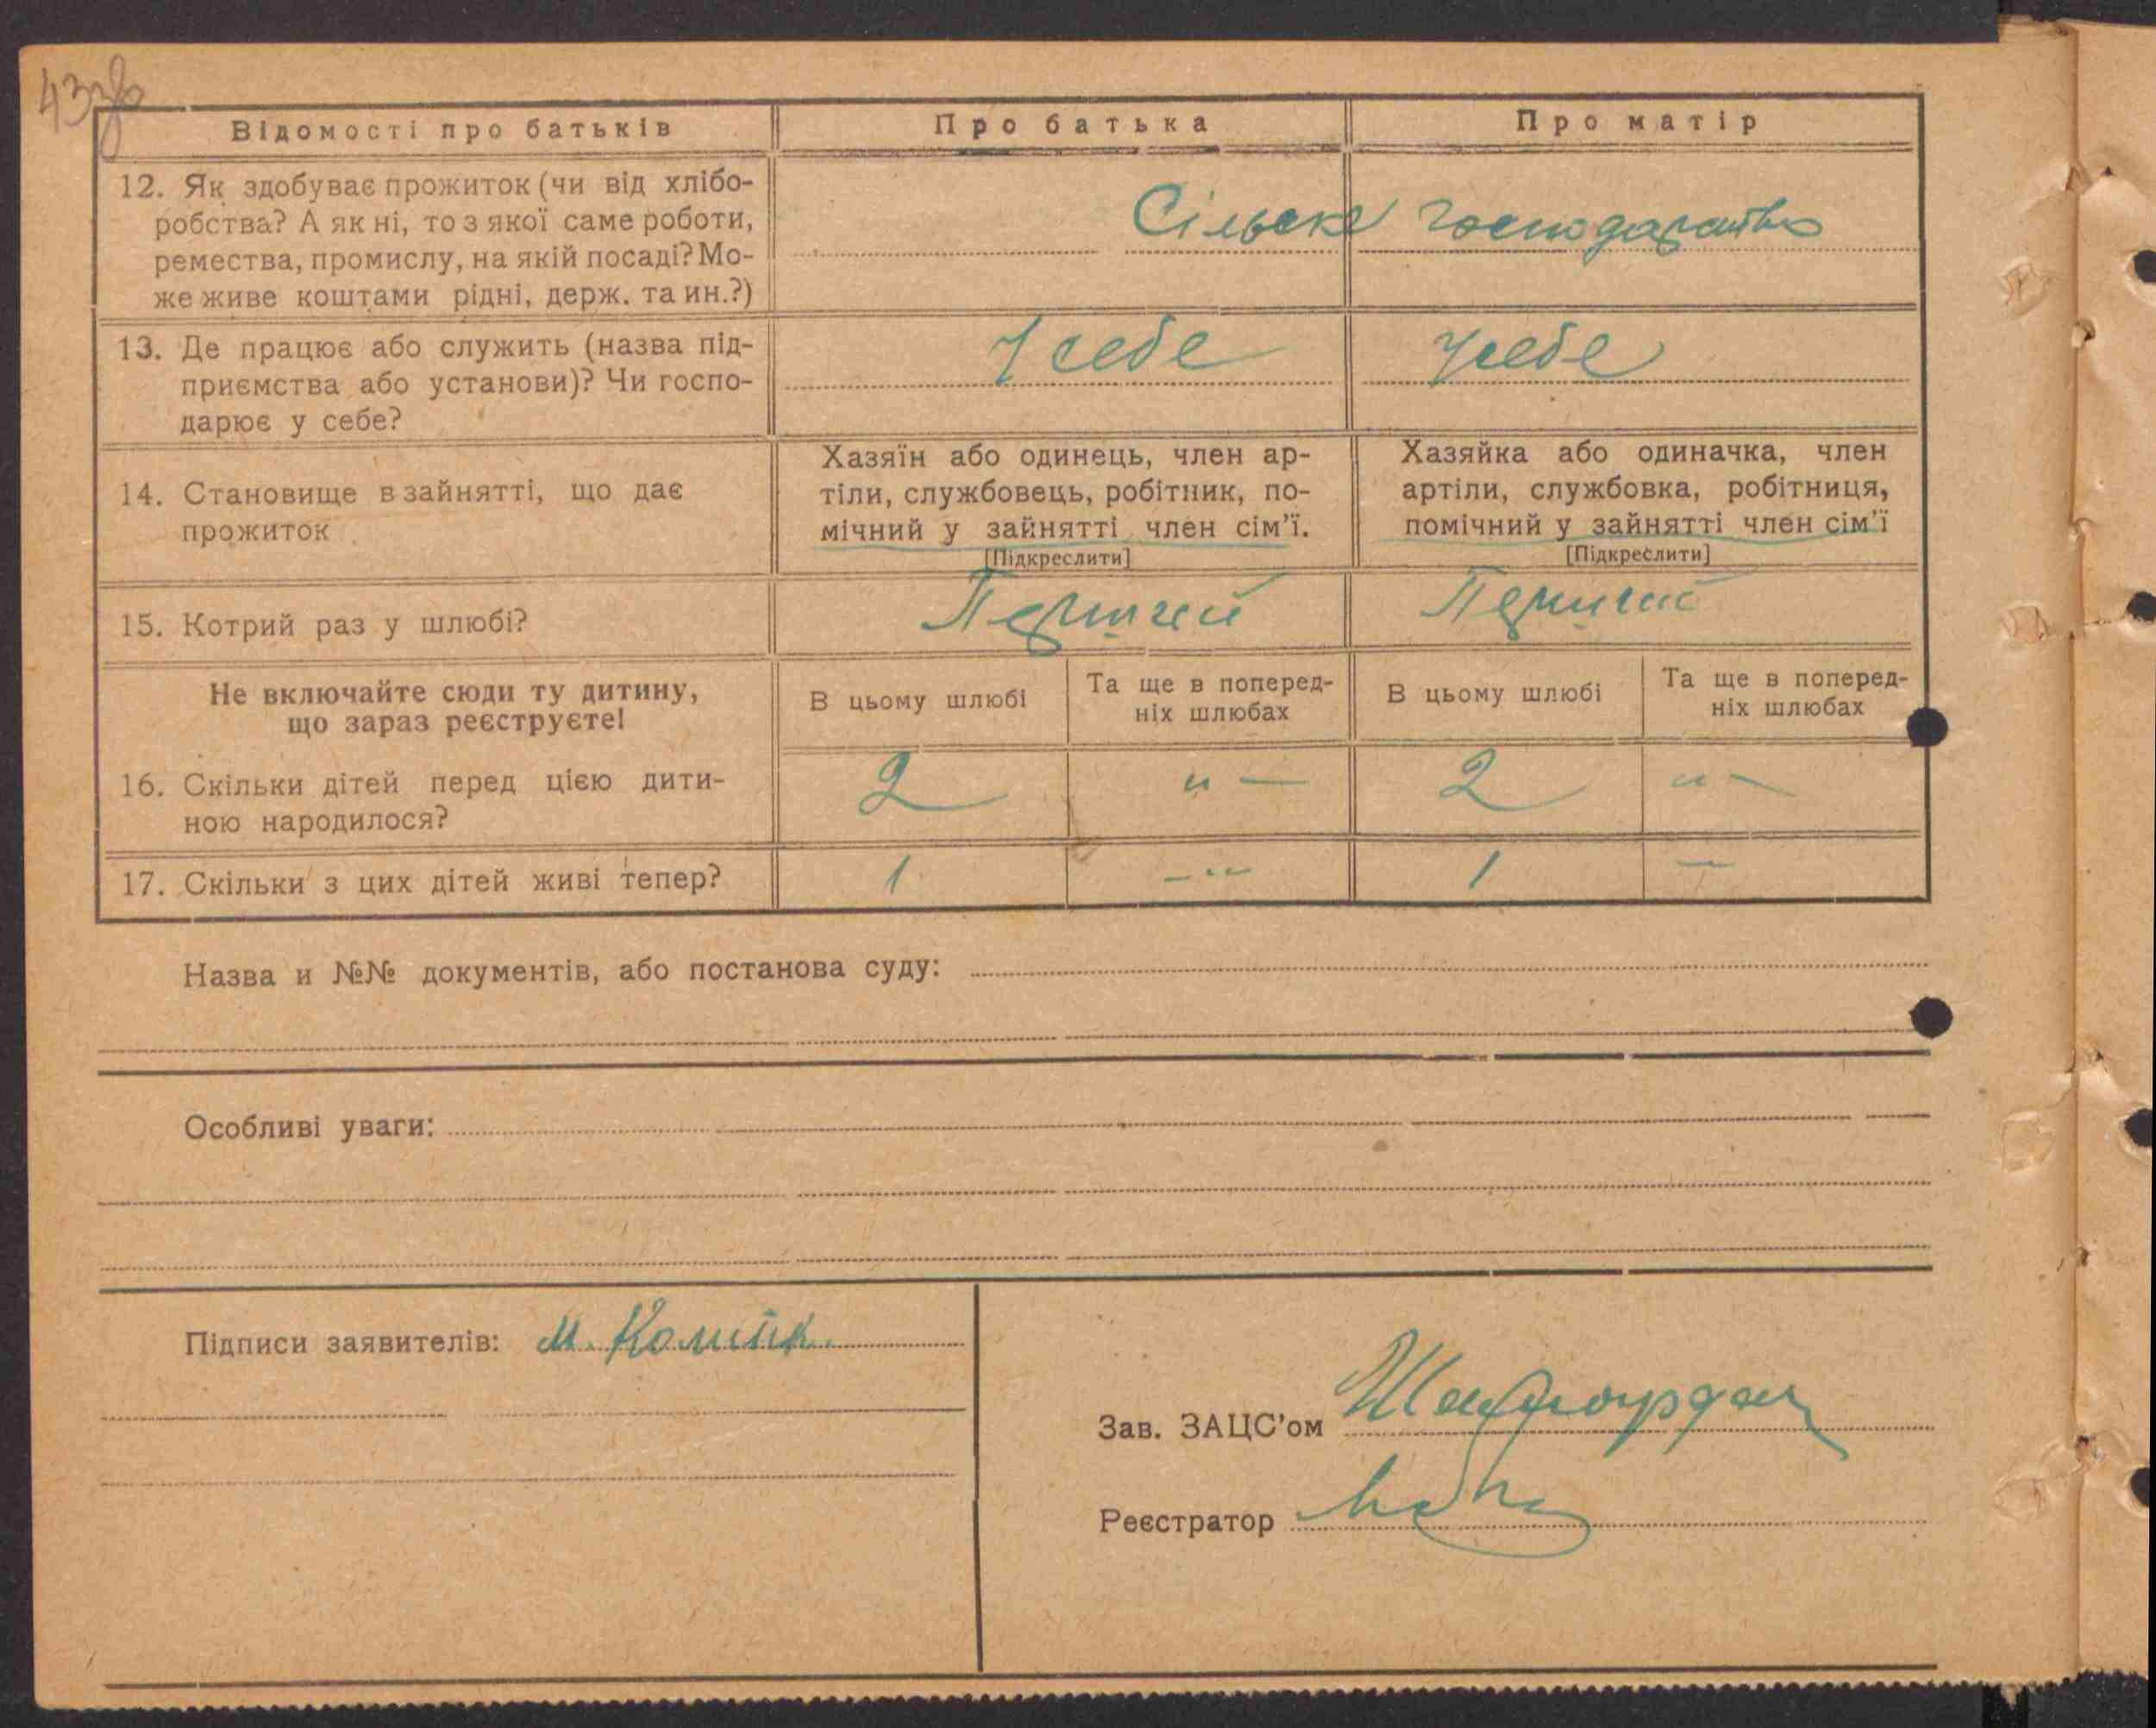 Відомості про батьків
Про батька
Про матір
12. Як здобуває прожиток (чи від хлібо-
робства? А як ні, то з якої саме роботи,
ремества, промислу, на якій посаді? Мо-
же живе коштами рідні, держ. та ин.?)
Сільске господарство
13. Де працює або служить (назва під-
приємства або установи)? Чи госпо-
дарює у себе?
У себе
У себе
14. Становище в зайнятті, що дає
прожиток
Хазяїн або одинець, член ар-
тіли, службовець, робітник, по-
мічний у зайнятті член сім'ї.
[Підкреслити]
Хазяйка або одиначка, член
артіли, службовка, робітниця,
помічний у зайнятті член сім'ї
[Підкреслити]
15. Котрий раз у шлюбі?
Перший
Перший
Не включайте сюди ту дитину,
що зараз реєструєте!
В цьому шлюбі
Та ще в поперед-
ніх шлюбах
В цьому шлюбі
Та ще в поперед-
ніх шлюбах
16. Скільки дітей перед цією дити-
ною народилося?
2
" —
2
" —
17. Скільки з цих дітей живі тепер?
1
— "
1
—
Назва и №№ документів, або постанова суду:
Особливі уваги:
Підписи заявителів: М.
Зав. ЗАЦС'ом
Реєстратор